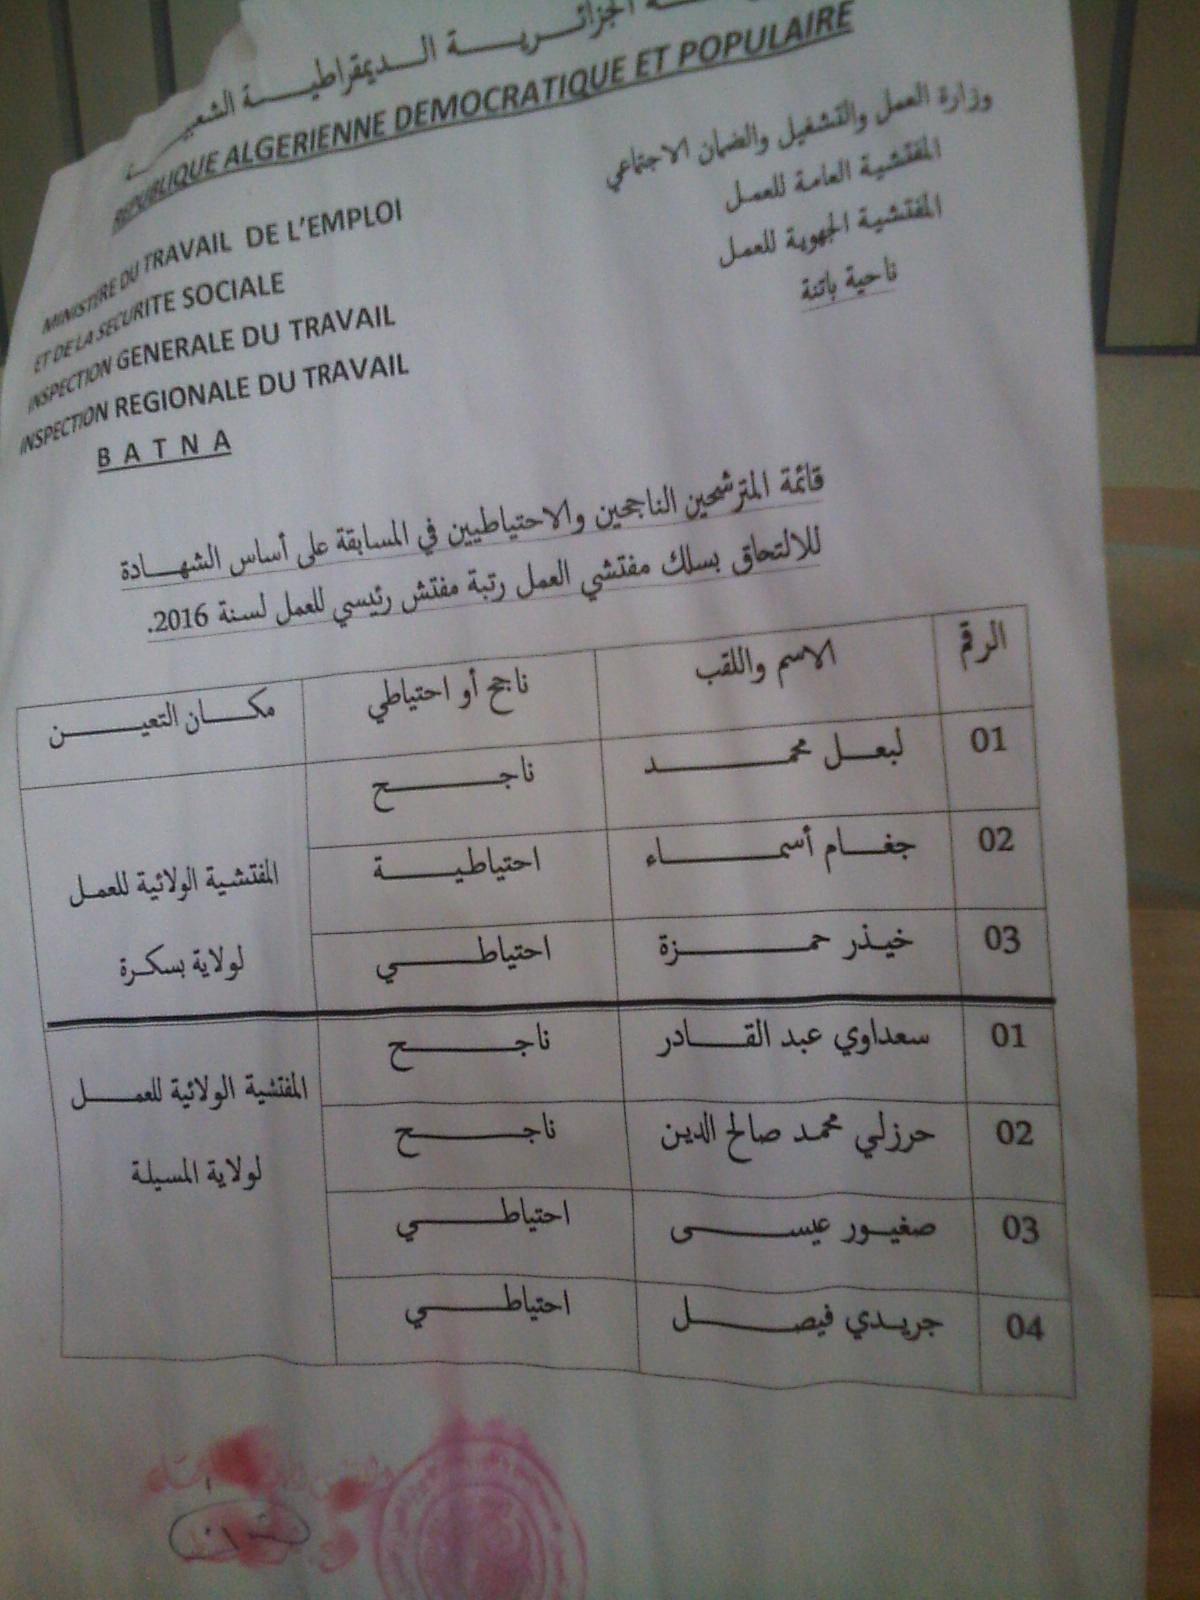 الجزائرية الديمقراطية الشعبية
REPUBLIQUE ALGERIENNE DEMOCRATIQUE ET POPULAIRE
وزارة العمل والتشغيل والضمان الاجتماعي
المفتشية العامة للعمل
المفتشية الجهوية للعمل
ناحية باتنة
MINISTERE DU TRAVAIL DE L'EMPLOI
ET DE LA SECURITE SOCIALE
INSPECTION GENERALE DU TRAVAIL
INSPECTION REGIONALE DU TRAVAIL
B A T N A
قائمة المترشحين الناجحين والاحتياطيين في المسابقة على أساس الشهادة
للالتحاق بسلك مفتشي العمل رتبة مفتش رئيسي للعمل لسنة 2016.
الرقم الاسم واللقب ناجح أو احتياطي مكان التعين
01 لبعل محمد ناجح
02 جغام أسماء احتياطية
المفتشية الولائية للعمل
03 خيذر حمزة احتياطي
لولاية بسكرة
01 سعداوي عبد القادر ناجح
المفتشية الولائية للعمل
02 حرزلي محمد صالح الدين ناجح
لولاية المسيلة
03 صغيور عيسى احتياطي
04 جريدي فيصل احتياطي